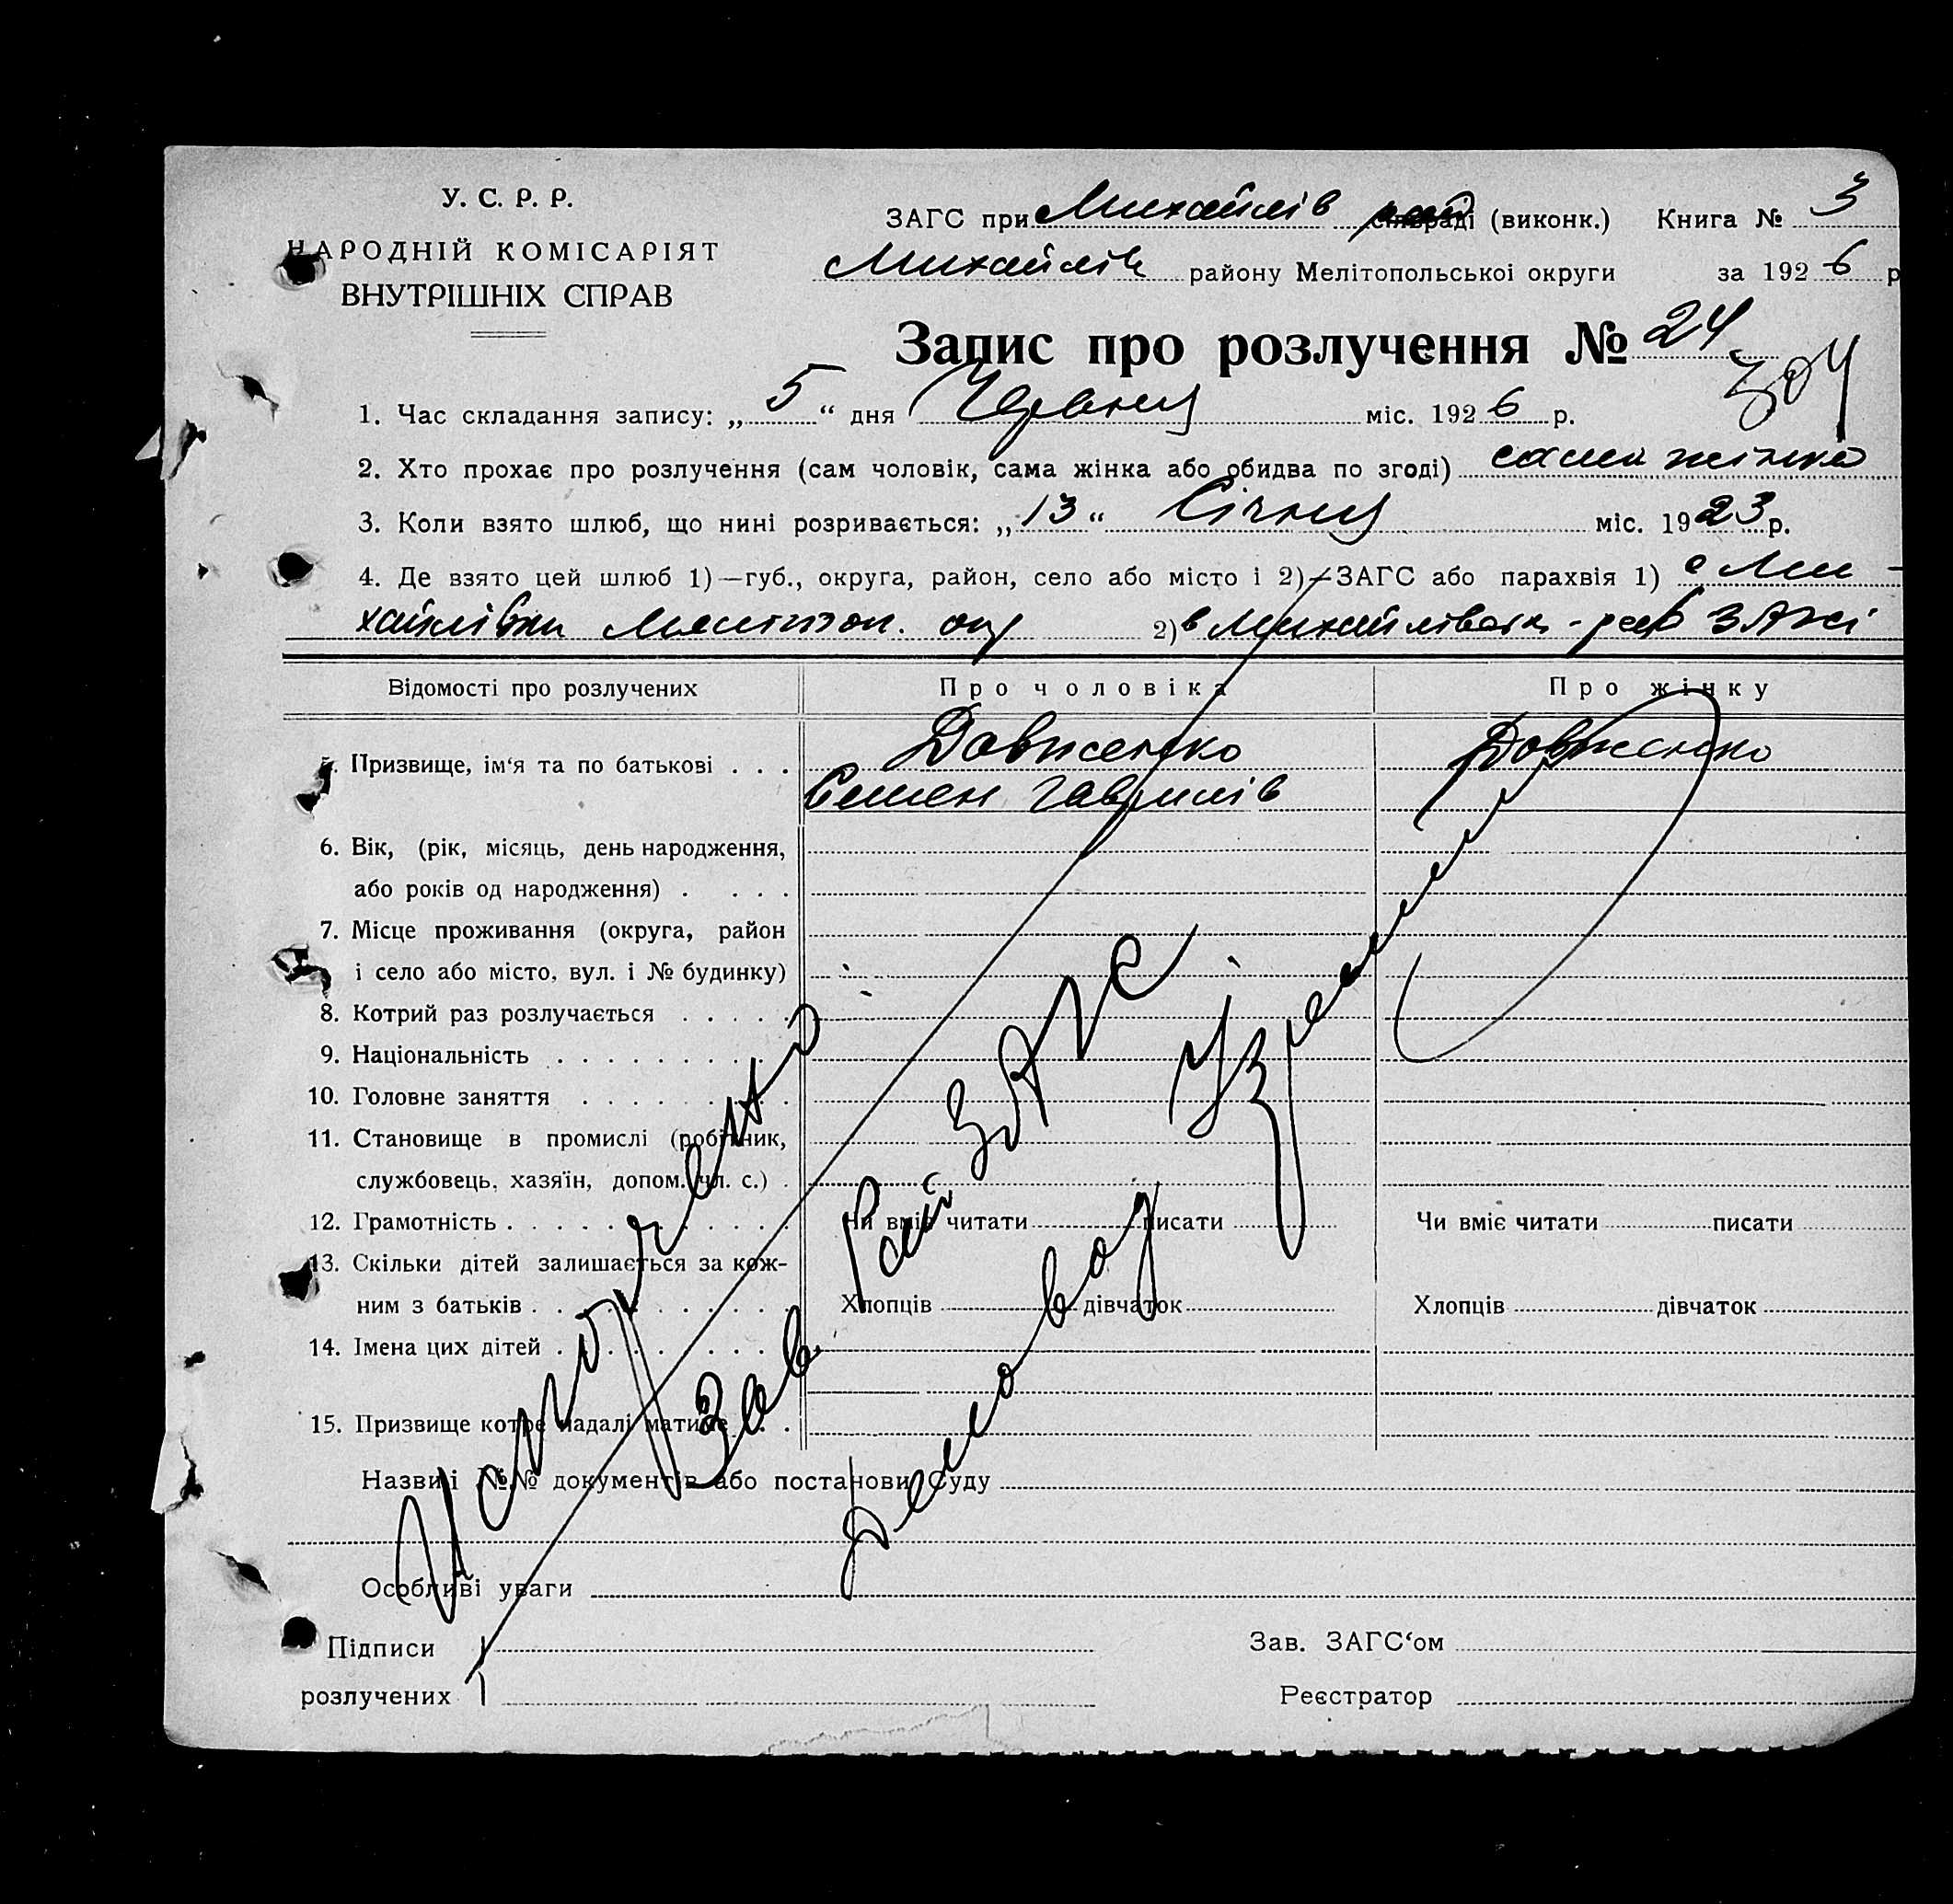 У. С. Р. Р.
НАРОДНІЙ КОМІСАРІЯТ
ВНУТРІШНІХ СПРАВ
ЗАГС при Михайлів рай (виконк.) Книга № 3
Михайлів району Мелітопольської округи за 1926 р
Запис про розлучення № 24
304
1. Час складання запису: „5“ дня Червня міс. 1926 р.
2. Хто прохає про розлучення (сам чоловік, сама жінка або обидва по згоді) сама жінка
3. Коли взято шлюб, що нині розривається: „13“ Січня міс. 1923 р.
4. Де взято цей шлюб 1)—губ., округа, район, село або місто і 2)—ЗАГС або парахвія 1) с Ми-
хайлівки Мелітоп. окр 2) в Михайлівськ. рай ЗАГСі
Відомості про розлучених Про чоловіка Про жінку
5. Призвище, ім‘я та по батькові . . . Довженко Довженко
Семен Гаврилів
6. Вік, (рік, місяць, день народження,
або років од народження) . . . .
7. Місце проживання (округа, район
і село або місто, вул. і № будинку)
8. Котрий раз розлучається . . . . .
9. Національність . . . . . . . . . .
10. Головне заняття . . . . . . . . .
11. Становище в промислі (робітник,
службовець, хазяїн, допом. чл. с.) .
12. Грамотність . . . . . . . . . . . . Чи вміє читати писати Чи вміє читати писати
13. Скільки дітей залишається за кож-
ним з батьків . . . . . . . . . . . Хлопців дівчаток Хлопців дівчаток
14. Імена цих дітей . . . . . . . . . .
15. Призвище котре надалі матиме . . .
Назви і №№ документів або постанови Суду
Особливі уваги
Підписи
розлучених
Зав. ЗАГС‘ом
Реєстратор
Зав Рай ЗАГС
Діловод